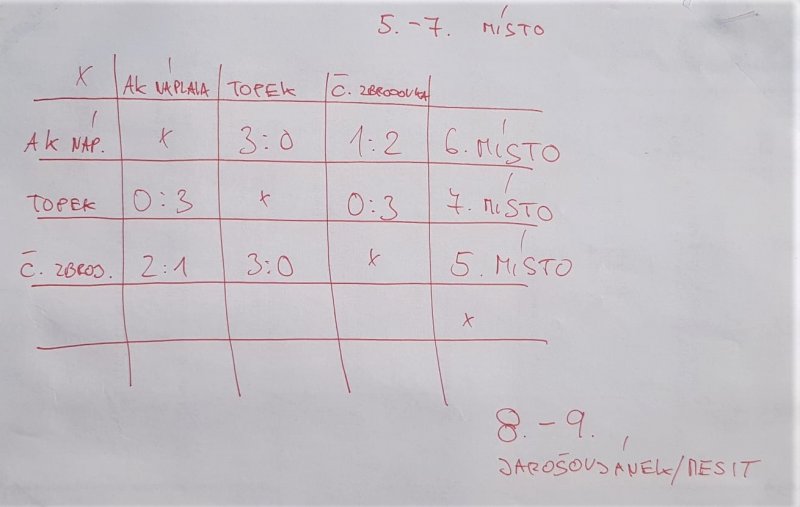 5.-7. MÍSTO
X AK NÁPLAVA TOPEK Č. ZBROJOVKA
AK NÁP. X 3:0 1:2 6. MÍSTO
TOPEK 0:3 X 0:3 7. MÍSTO
Č. ZBROJ. 2:1 3:0 X 5. MÍSTO
X
8.-9.
JAROŠOVJÁNEK/MESIT